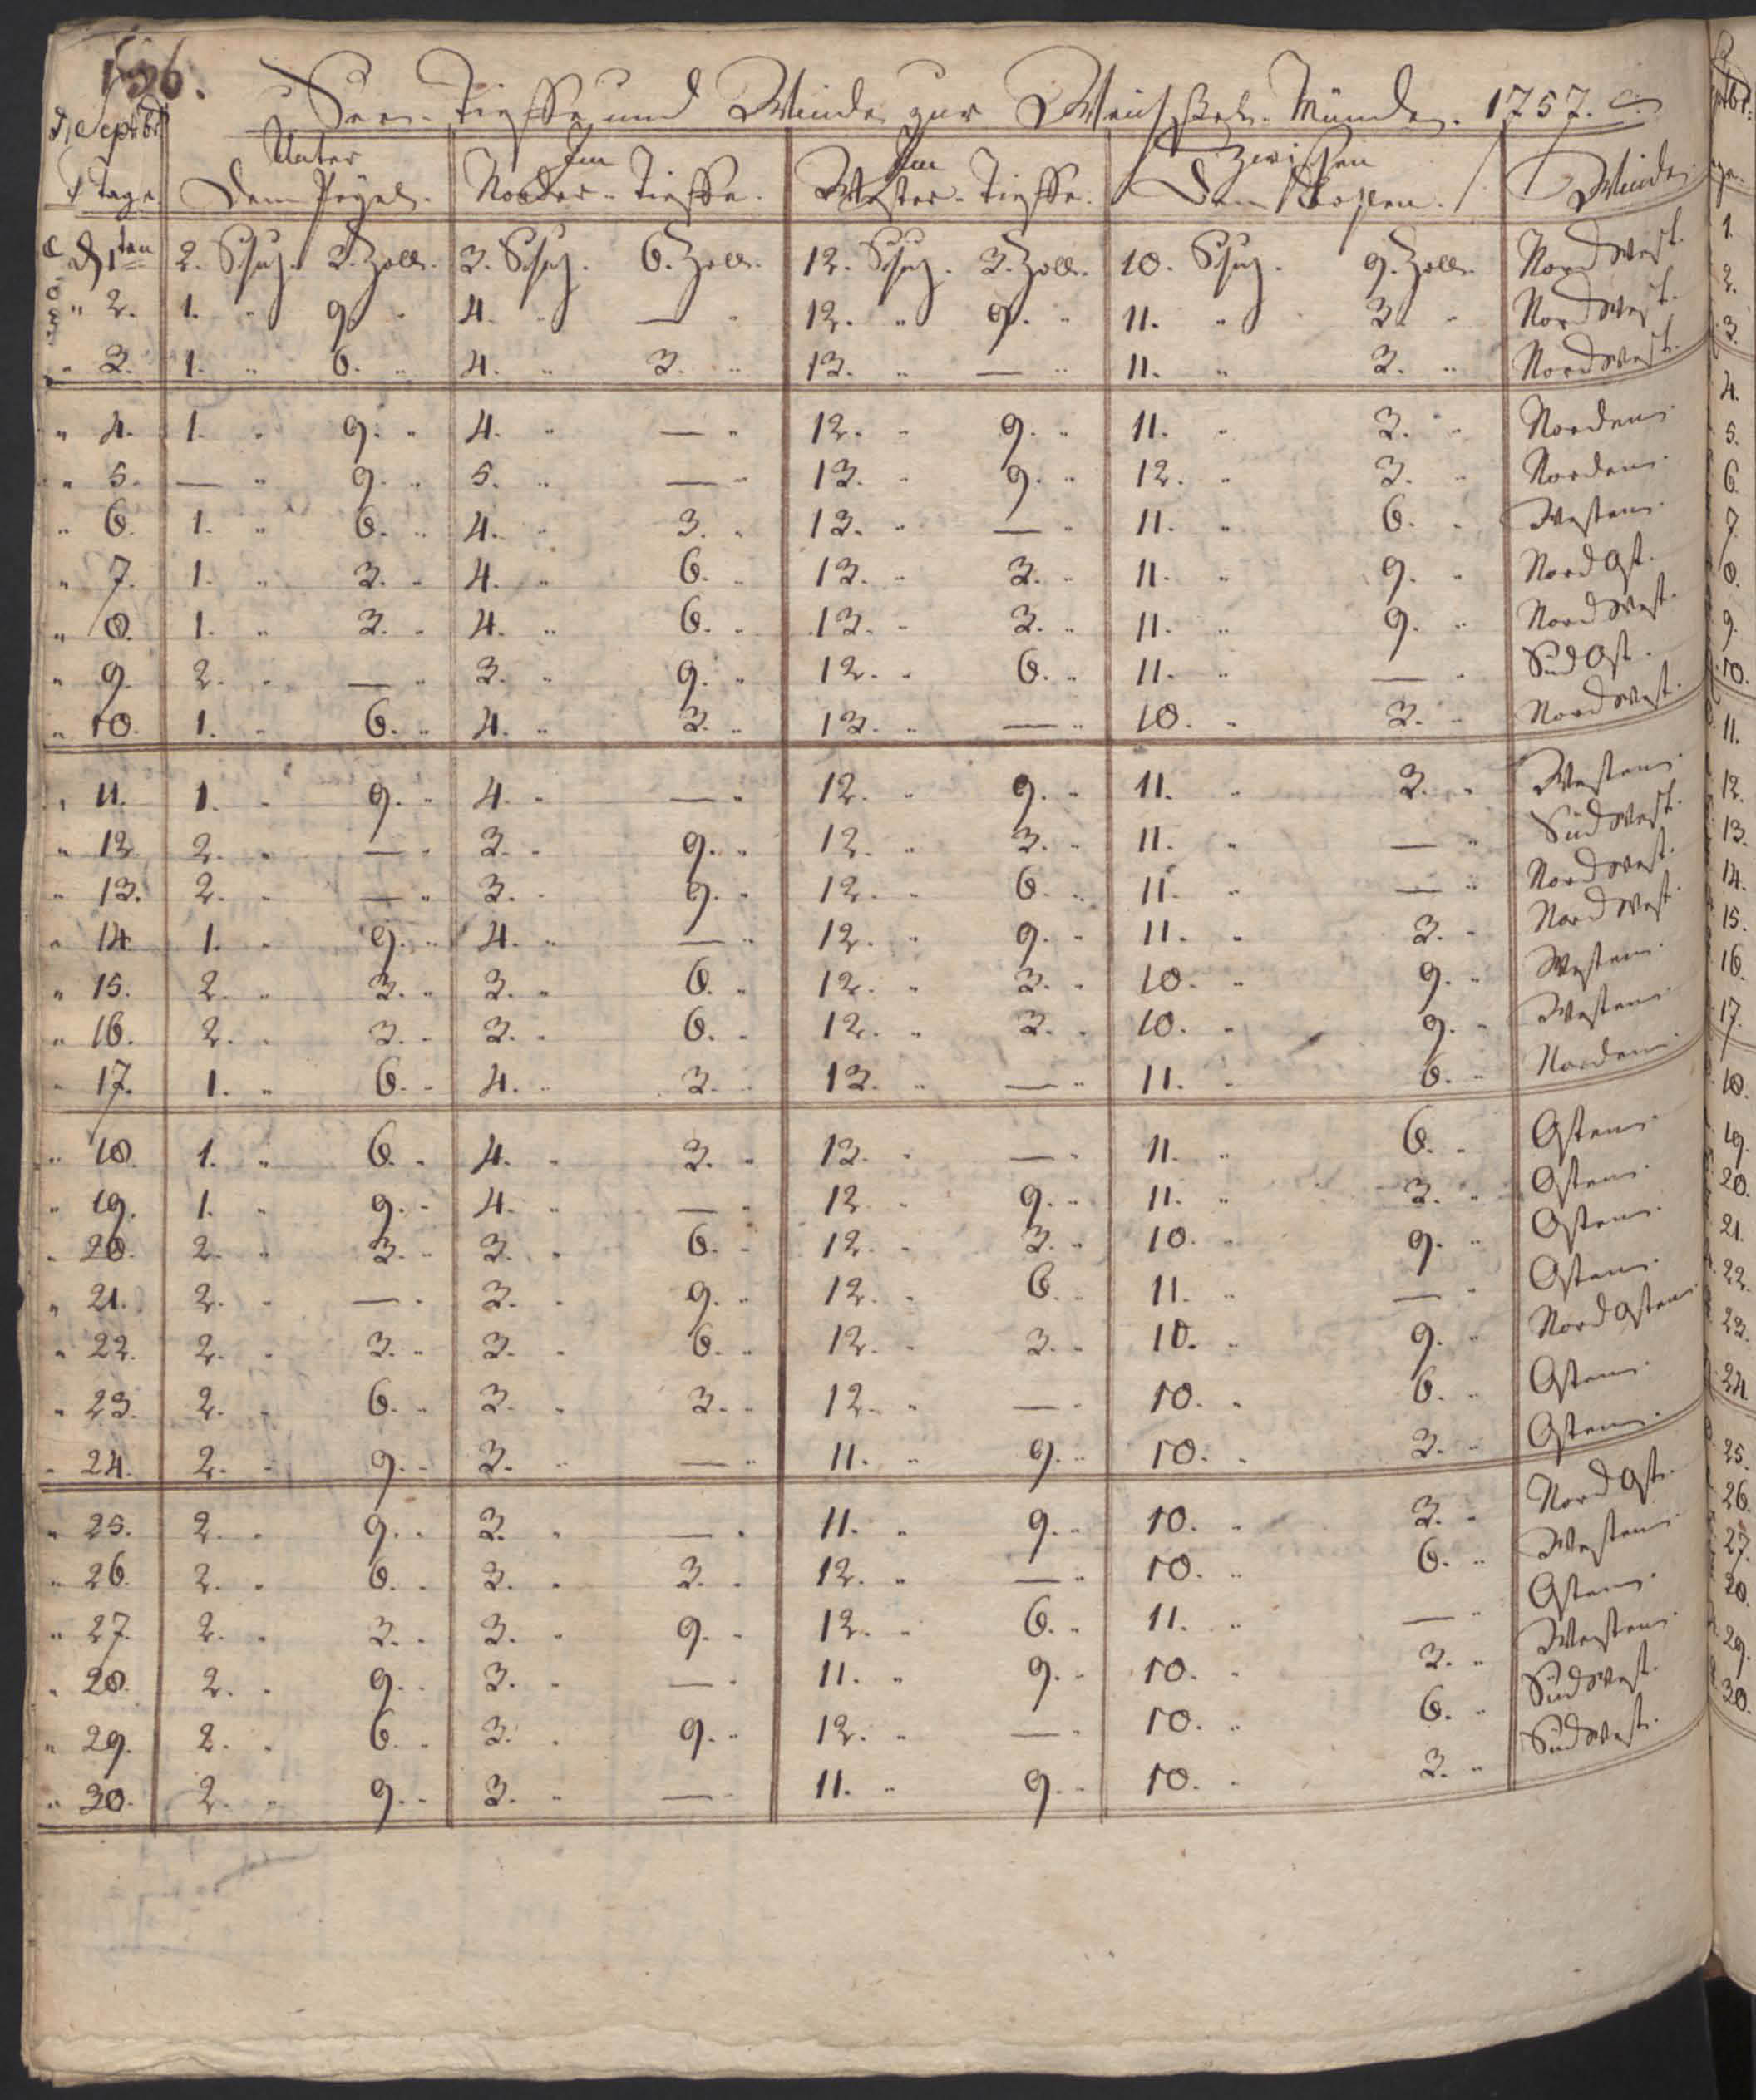 156.
See-Tieffe und Winde zur Weichsel-Münde. 1757.
d. Septbr.
Tage.
Unter dem Pegel.
Im Norder-Tieffe.
Im Wester-Tieffe.
Zwischen den
Winde
d 1ten 2. Schuh. 3. Zoll. 3. Schuh. 6. Zoll. 12. Schuh. 3. Zoll. 10. Schuh. 9. Zoll. Nord West.
" 2. 1. " 9. " 4. " — " 12. " 9. " 11. " 3. " Nord West.
" 3. 1. " 6. " 4. " 3. " 13. " — " 11. " 3. " Nord West.
" 4. 1. " 9. " 4. " — " 12. " 9. " 11. " 3. " Norden.
" 5. — " 9. " 5. " — " 13. " 9. " 12. " 3. " Norden.
" 6. 1. " 6. " 4. " 3. " 13. " — " 11. " 6. " Westen.
" 7. 1. " 3. " 4. " 6. " 13. " 3. " 11. " 9. " Nord Ost.
" 8. 1. " 3. " 4. " 6. " 13. " 3. " 11. " 9. " Nord West.
" 9. 2. " — " 3. " 9. " 12. " 6. " 11. " — " Süd Ost.
" 10. 1. " 6. " 4. " 3. " 13. " — " 10. " 3. " Nord West.
" 11. 1. " 9. " 4. " — " 12. " 9. " 11. " 3. " Westen.
" 12. 2. " — " 3. " 9. " 12. " 3. " 11. " — " Süd West.
" 13. 2. " — " 3. " 9. " 12. " 6. " 11. " — " Nord West.
" 14. 1. " 9. " 4. " — " 12. " 9. " 11. " 3. " Nord West.
" 15. 2. " 3. " 3. " 6. " 12. " 3. " 10. " 9. " Westen.
" 16. 2. " 3. " 3. " 6. " 12. " 3. " 10. " 9. " Westen.
" 17. 1. " 6. " 4. " 3. " 13. " — " 11. " 6. " Norden.
" 18. 1. " 6. " 4. " 3. " 13. " — " 11. " 6. " Osten.
" 19. 1. " 9. " 4. " — " 12. " 9. " 11. " 3. " Osten.
" 20. 2. " 3. " 3. " 6. " 12. " 3. " 10. " 9. " Osten.
" 21. 2. " — " 3. " 9. " 12. " 6. " 11. " — " Osten.
" 22. 2. " 3. " 3. " 6. " 12. " 3. " 10. " 9. " Nord Osten.
" 23. 2. " 6. " 3. " 3. " 12. " — " 10. " 6. " Osten.
" 24. 2. " 9. " 3. " — " 11. " 9. " 10. " 3. " Osten.
" 25. 2. " 9. " 3. " — " 11. " 9. " 10. " 3. " Nord Ost.
" 26. 2. " 6. " 3. " 3. " 12. " — " 10. " 6. " Westen.
" 27. 2. " 3. " 3. " 9. " 12. " 6. " 11. " — " Osten.
" 28. 2. " 9. " 3. " — " 11. " 9. " 10. " 3. " Westen.
" 29. 2. " 6. " 3. " 9. " 12. " — " 10. " 6. " Süd West.
" 30. 2. " 9. " 3. " — " 11. " 9. " 10. " 3. " Süd West.
1.
2.
3.
4.
5.
6.
7.
8.
9.
10.
11.
12.
13.
14.
15.
16.
17.
18.
19.
20.
21.
22.
23.
24.
25.
26.
27.
28.
29.
30.